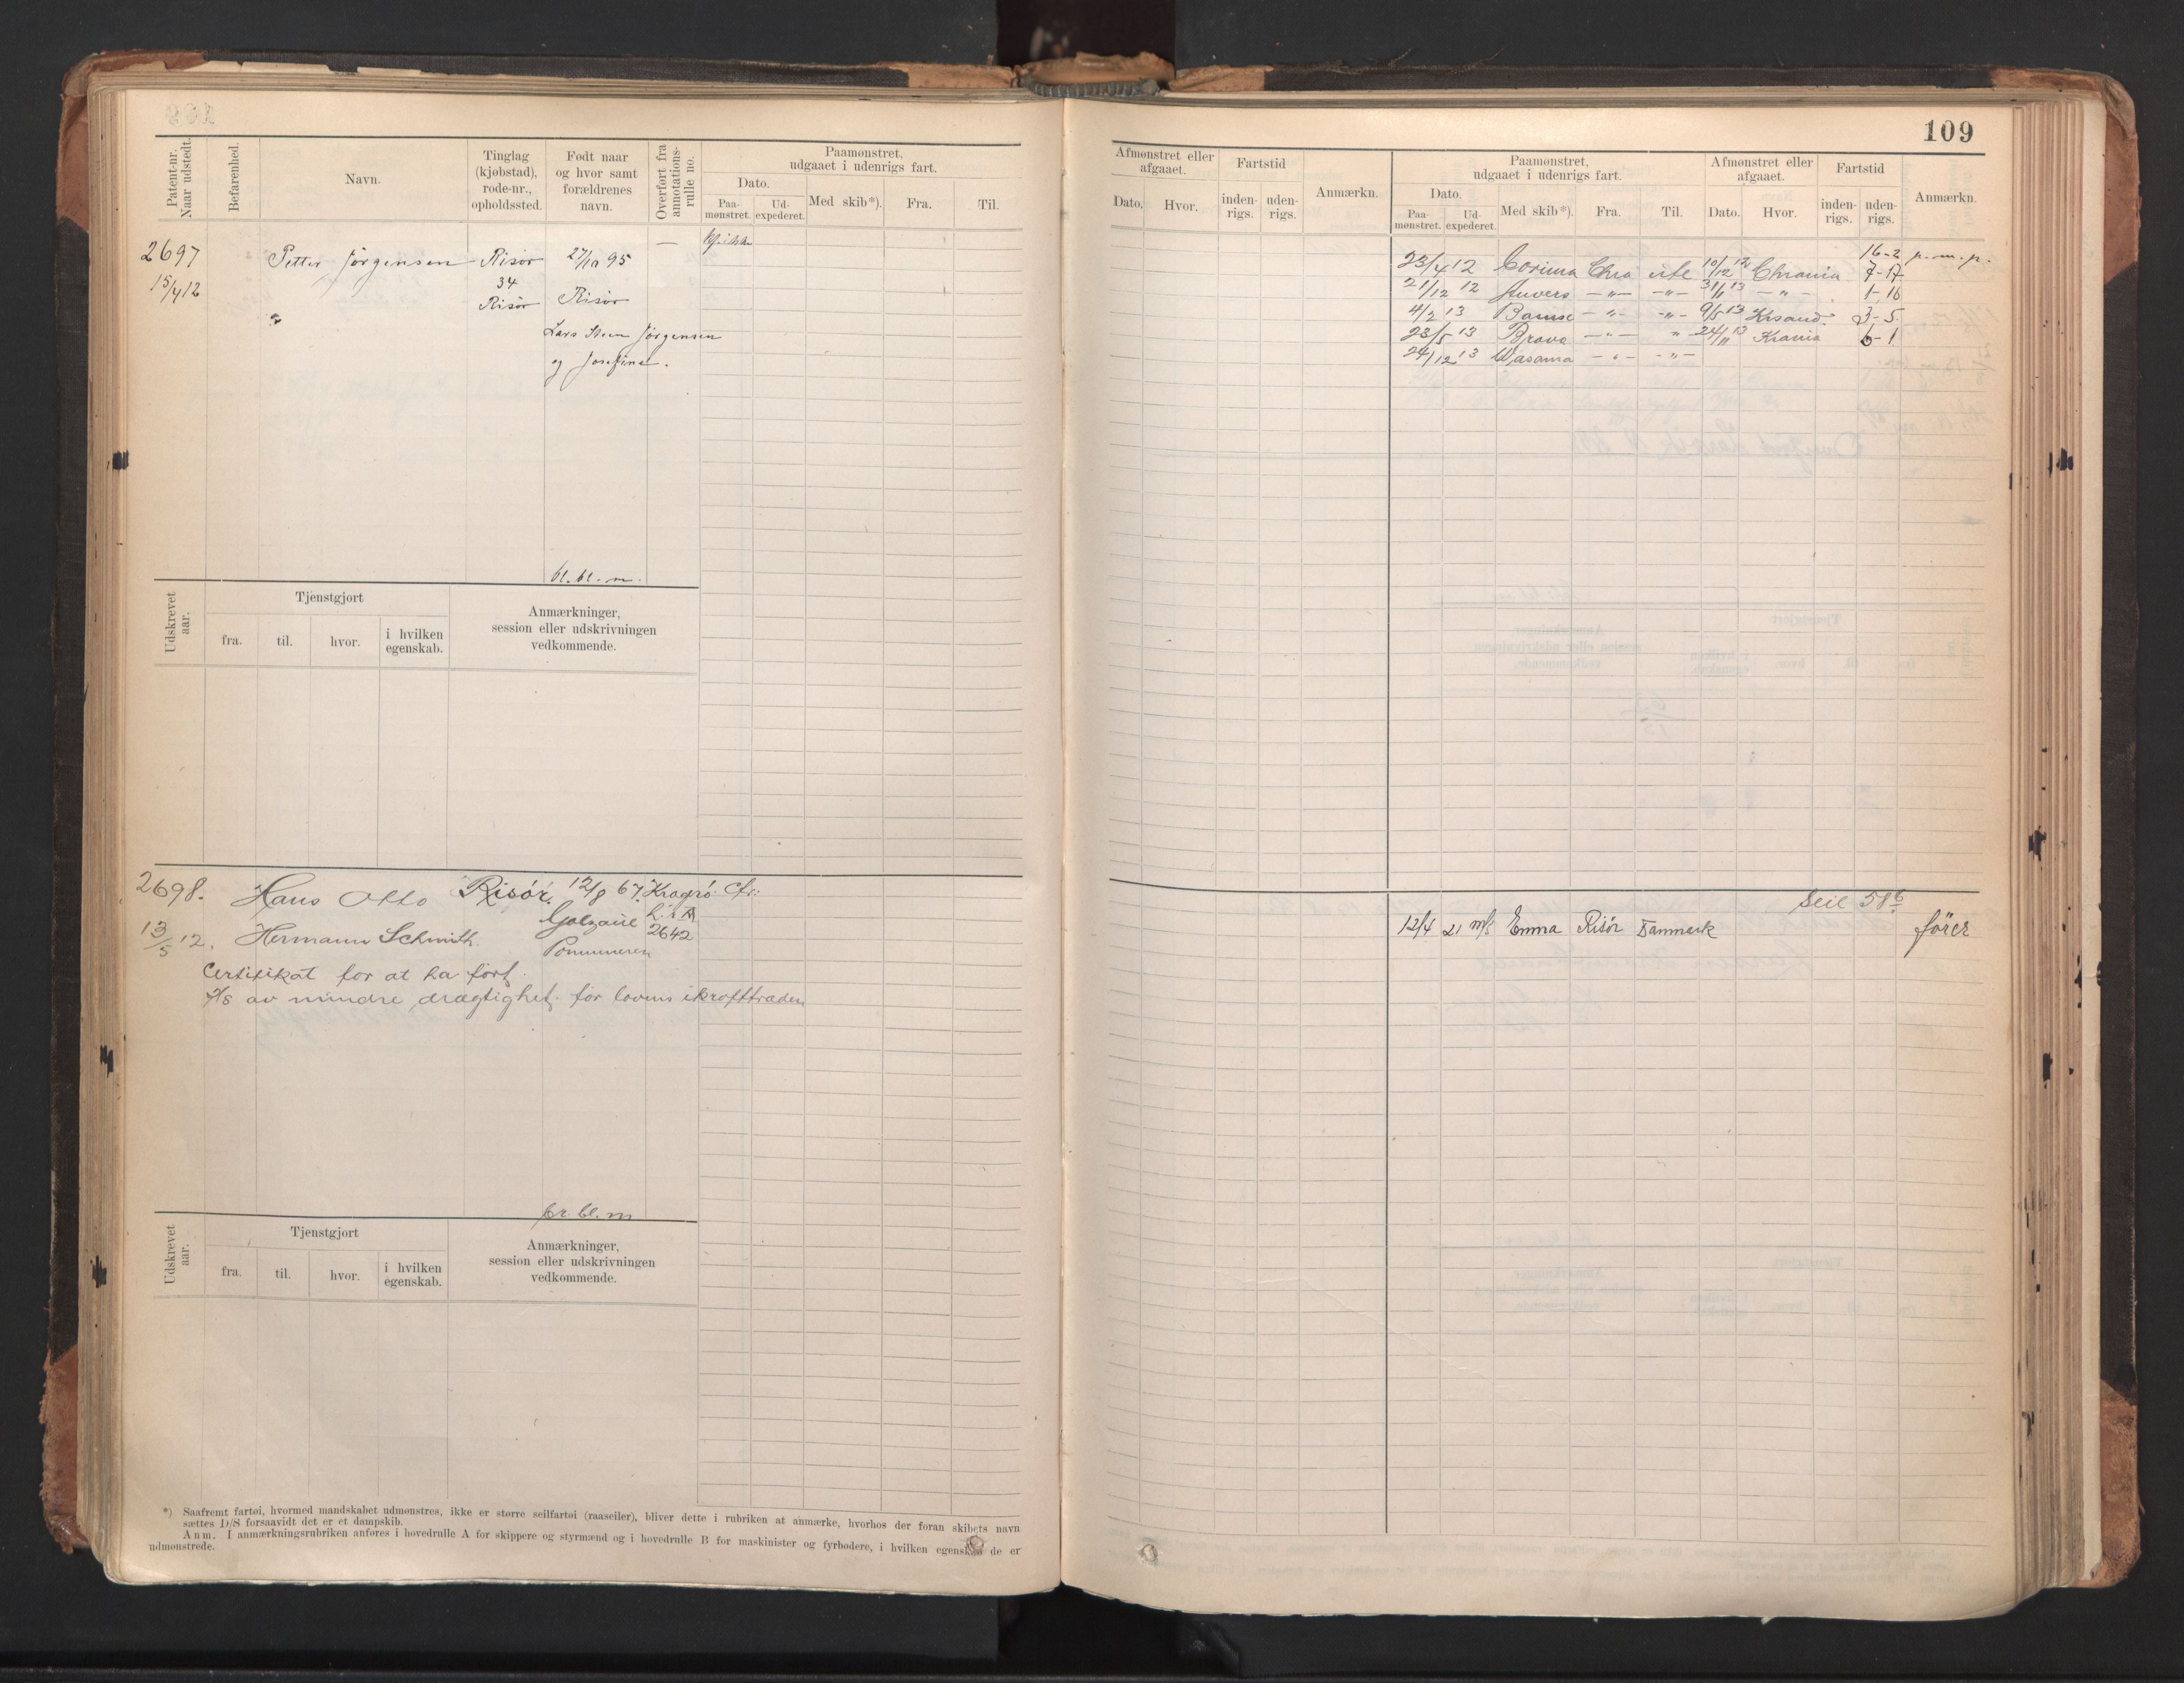 109
Patent-nr. Naar udstedt.
Befarenhed.
Navn.
Tinglag (kjøbstad), rode-nr., opholdssted.
Født naar og hvor samt forældrenes navn.
Overført fra annotations-rulle no.
Paamønstret, udgaaet i udenrigs fart.
Dato.
Paa-mønstret.
Ud-expederet.
Med skib*).
Fra.
Til.
Afmønstret eller afgaaet.
Dato.
Hvor.
Fartstid
inden-rigs.
uden-rigs.
Anmærkn.
Paamønstret, udgaaet i udenrigs fart.
Dato.
Paa-mønstret.
Ud-expederet.
Med skib*).
Fra.
Til.
Afmønstret eller afgaaet.
Dato.
Hvor.
Fartstid
inden-rigs.
uden-rigs.
Anmærkn.
2697 Petter Jørgensen Risør 27/10 95 —
15/4 12 34
Risør Risør
Lars Steen Jørgensen
og Josefine.
bl. bl. m.
16-2 p. m. p.
23/4 12 Corinna Chra ute 10/12 12 Chrania 7-17
21/12 12 Anvers — " — — " — 31/1 13 — " — 1-10
4/2 13 Bamse — " — — " — 9/5 13 Krsand. 3-5
23/5 13 Brava — " — " 24/11 13 Krania 6-1
24/12 13 Wasama — " — — " —
Udskrevet aar.
Tjenstgjort
fra.
til.
hvor.
i hvilken egenskab.
Anmærkninger, session eller udskrivningen vedkommende.
2698. Hans Otto Risør. 12/8 67. Kragrö.
13/5 12. Hermann Schmith. 2642
Pommeren
Certifikat for at ha ført
S/s av mindre drægtighet før lovens ikrafttræden
br. bl. m
Seil 58 6
12/4 21 m/s Emma Risør Danmark fører
Udskrevet aar.
Tjenstgjort
fra.
til.
hvor.
i hvilken egenskab.
Anmærkninger, session eller udskrivningen vedkommende.
*) Saafremt fartøi, hvormed mandskabet udmønstres, ikke er større seilfartøi (raaseiler), bliver dette i rubriken at anmærke, hvorhos der foran skibets navn
sættes D/S forsaavidt det er et dampskib.
Anm. I anmærkningsrubriken anføres i hovedrulle A for skippere og styrmænd og i hovedrulle B for maskinister og fyrbødere, i hvilken egenskab de er
udmønstrede.